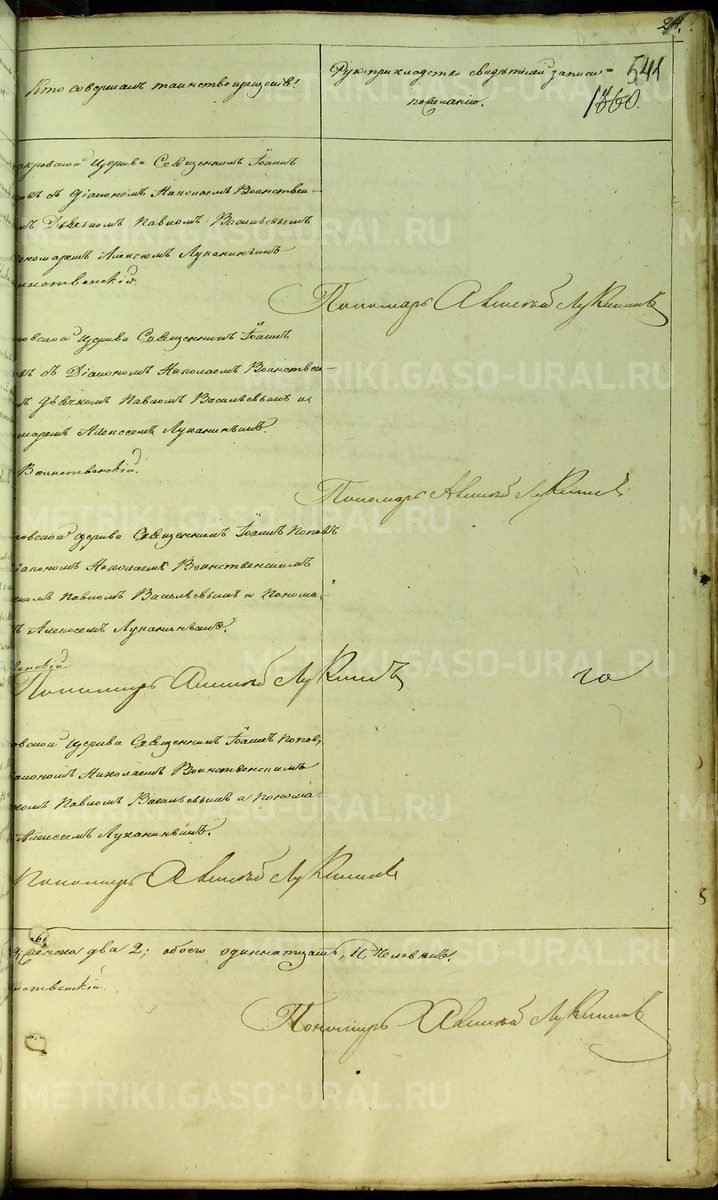 24.
Кто совершалъ таинство крещенія?
Рукоприкладство свидѣтелей записи
по желанію.
541
1860.
церкви Священникъ Іоаннъ
съ Діакономъ Николаемъ Воинствен-
Дьячкомъ Павломъ Васильевымъ
Алексѣемъ Луканинымъ
Пономарь Алексѣй Луканинъ
церкви Священникъ Іоаннъ
съ Діакономъ Николаемъ Воинствен-
Дьячкомъ Павломъ Васильевымъ и
Алексѣемъ Луканинымъ.
Воинственскій.
Пономарь Алексѣй Луканинъ
церкви Священникъ Іоаннъ Поповъ
Николаемъ Воинственскимъ
Павломъ Васильевымъ и Понома-
Алексѣемъ Луканинымъ.
Пономарь Алексѣй Луканинъ
церкви Священникъ Іоаннъ Поповъ
Николаемъ Воинственскимъ
Павломъ Васильевымъ и Понома-
Алексѣемъ Луканинымъ.
Пономарь Алексѣй Луканинъ
женска два 2; обоего одиннатцать, 11, человѣкъ.
Пономарь Алексѣй Луканинъ
METRIKI.GASO-URAL.RU